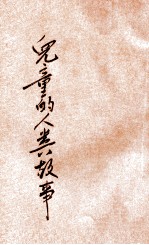 兒童的人类故事